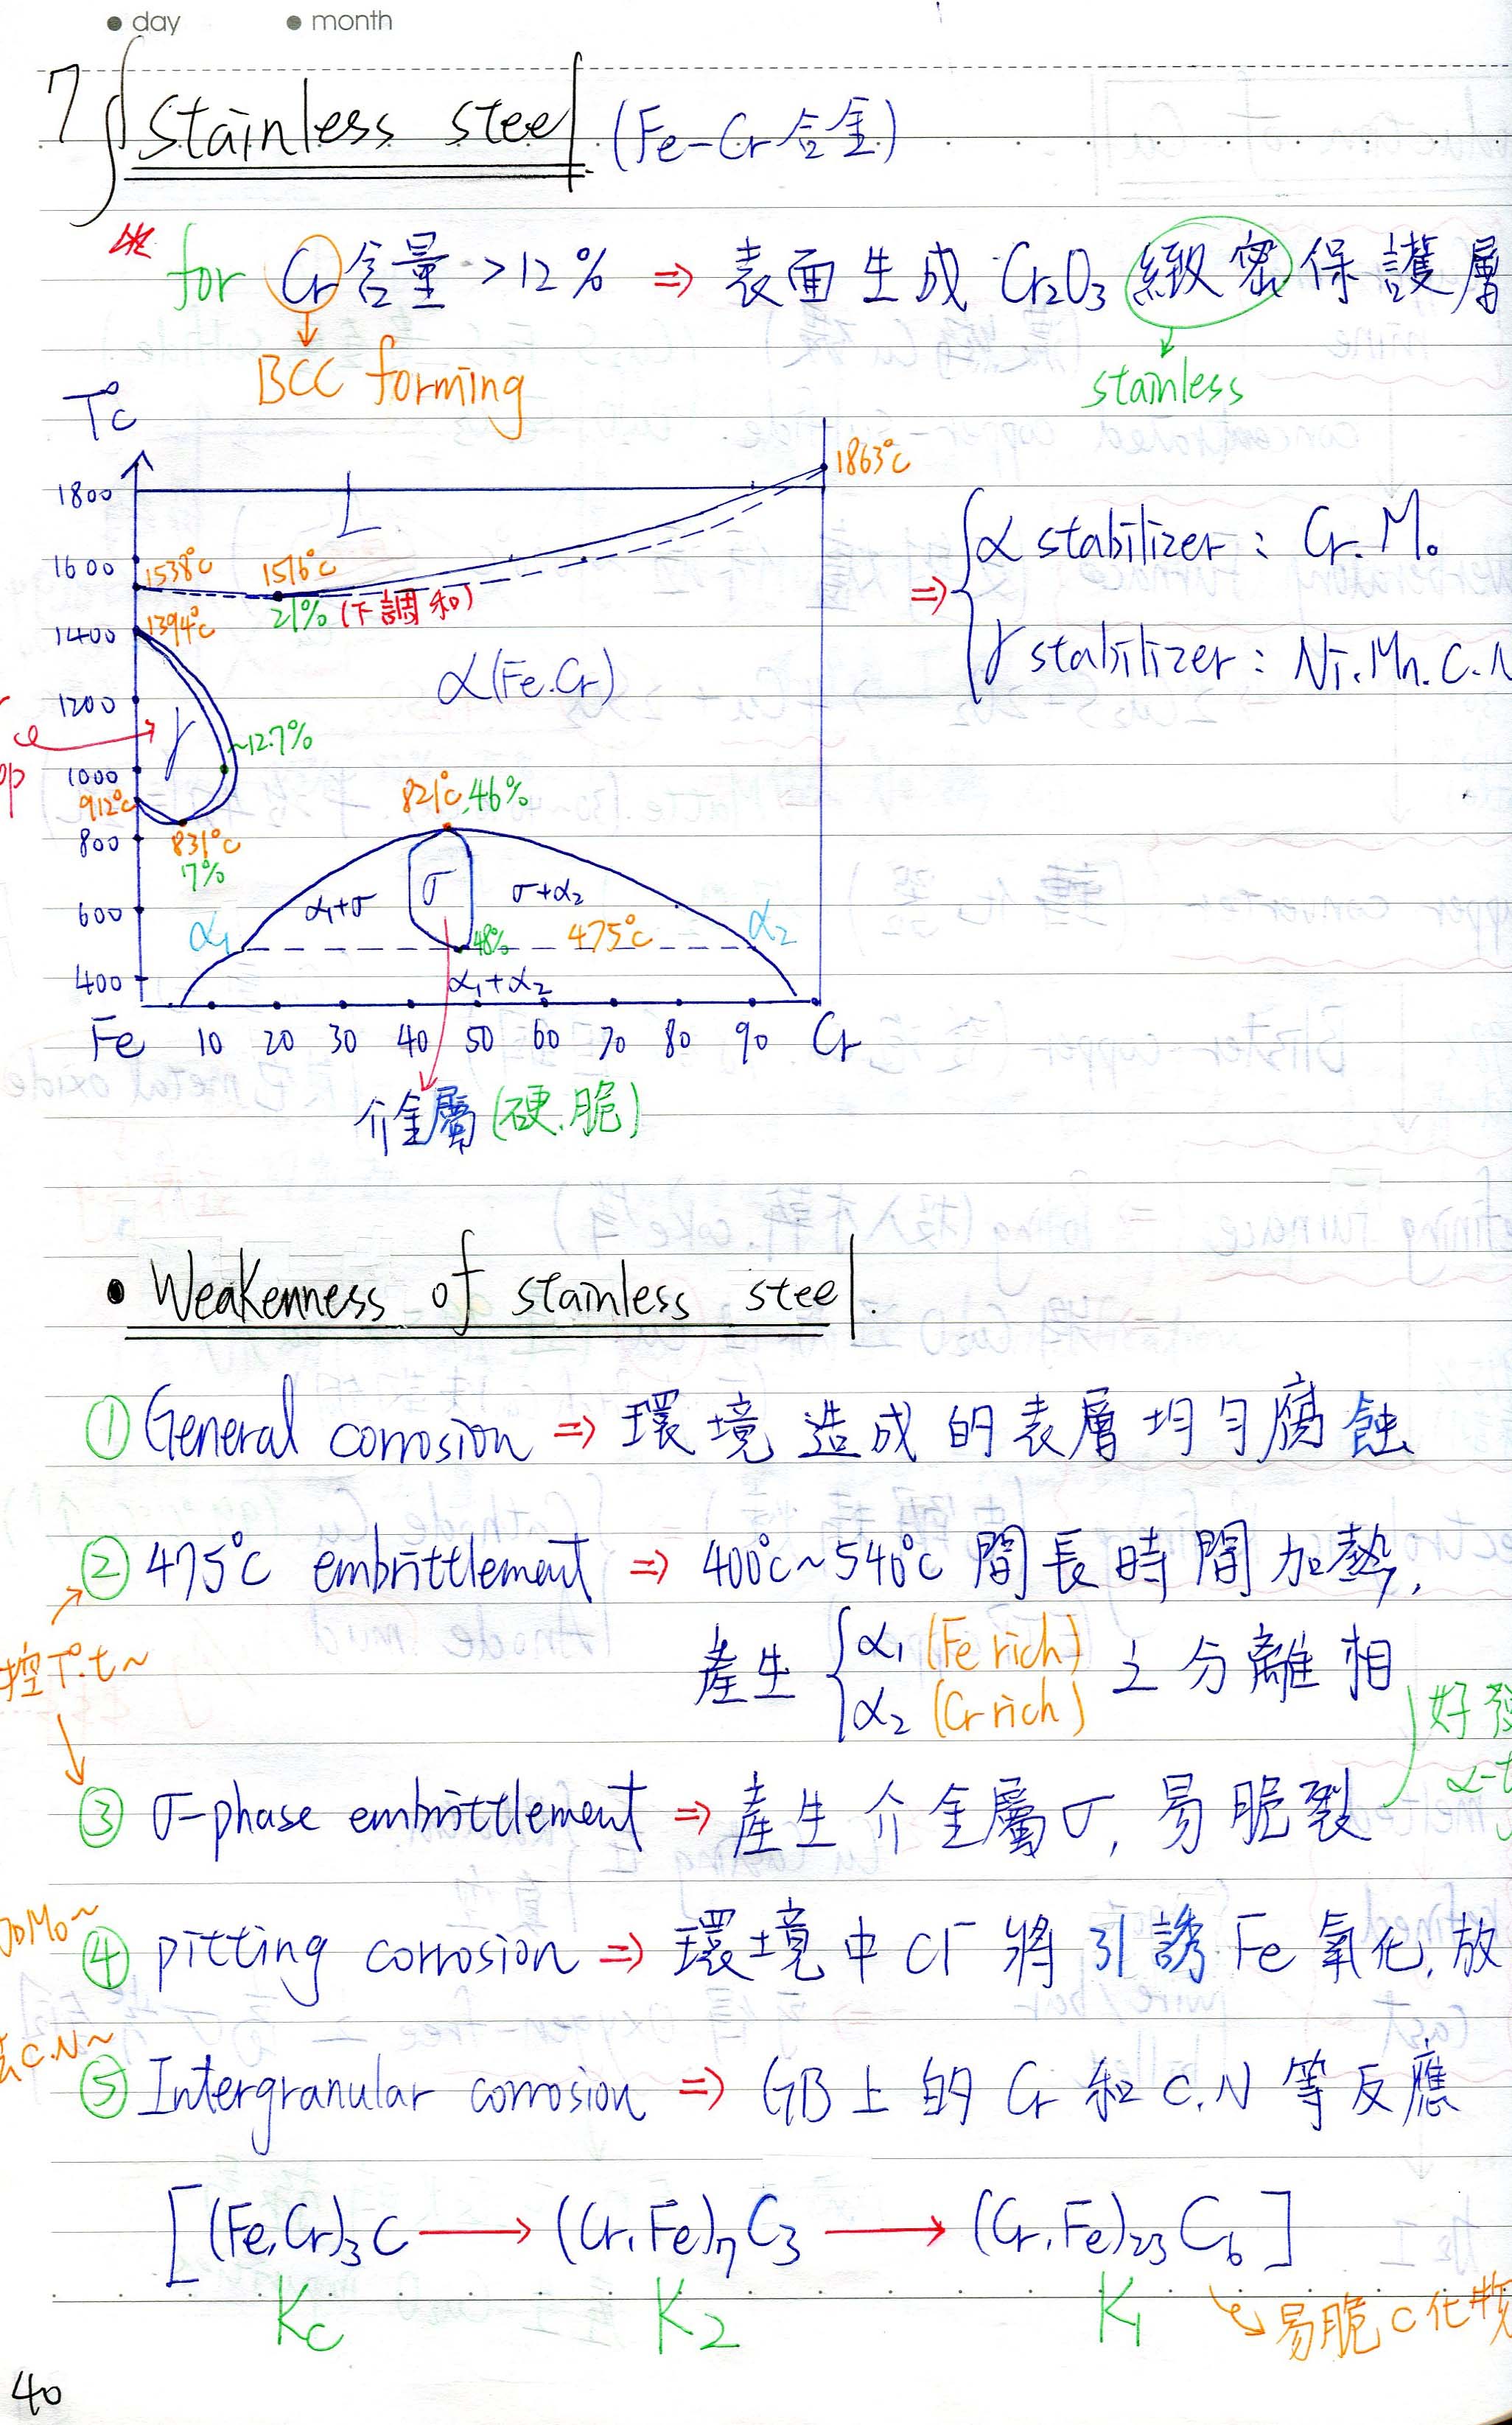 day month
7 Stainless steel (Fe-Cr合金)
for Cr含量 >12% ⇒ 表面生成 Cr2O3 緻密保護層
BCC forming
stainless
T°C
1863°C
1800
L
α stabilizer : Cr. Mo
1600 1538°C 1516°C
21% (下調和)
⇒
1400 1394°C
γ stabilizer : Ni. Mn. C. N
α(Fe.Cr)
1200
γ ~12.7%
1000
912°C 821°C, 46%
800 831°C
7%
α1+σ σ σ+α2
600
α1 48% 475°C α2
400 α1+α2
Fe 10 20 30 40 50 60 70 80 90 Cr
介金屬 (硬.脆)
• Weakenness of stainless steel.
① General corrosion ⇒ 環境造成的表層均勻腐蝕
② 475°C embrittlement ⇒ 400°C~540°C 間長時間加熱,
控T°.t~
產生 { α1 (Fe rich) α2 (Cr rich) 之分離相
好發
③ σ-phase embrittlement ⇒ 產生介金屬σ, 易脆裂
加Mo~
④ pitting corrosion ⇒ 環境中 Cl⁻ 將引誘 Fe 氧化, 放
去C.N~
⑤ Intergranular corrosion ⇒ GB上的 Cr 和 C.N 等反應
[(Fe,Cr)3C → (Cr,Fe)7C3 → (Cr,Fe)23C6]
Kc K2 K1 易脆C化物
40